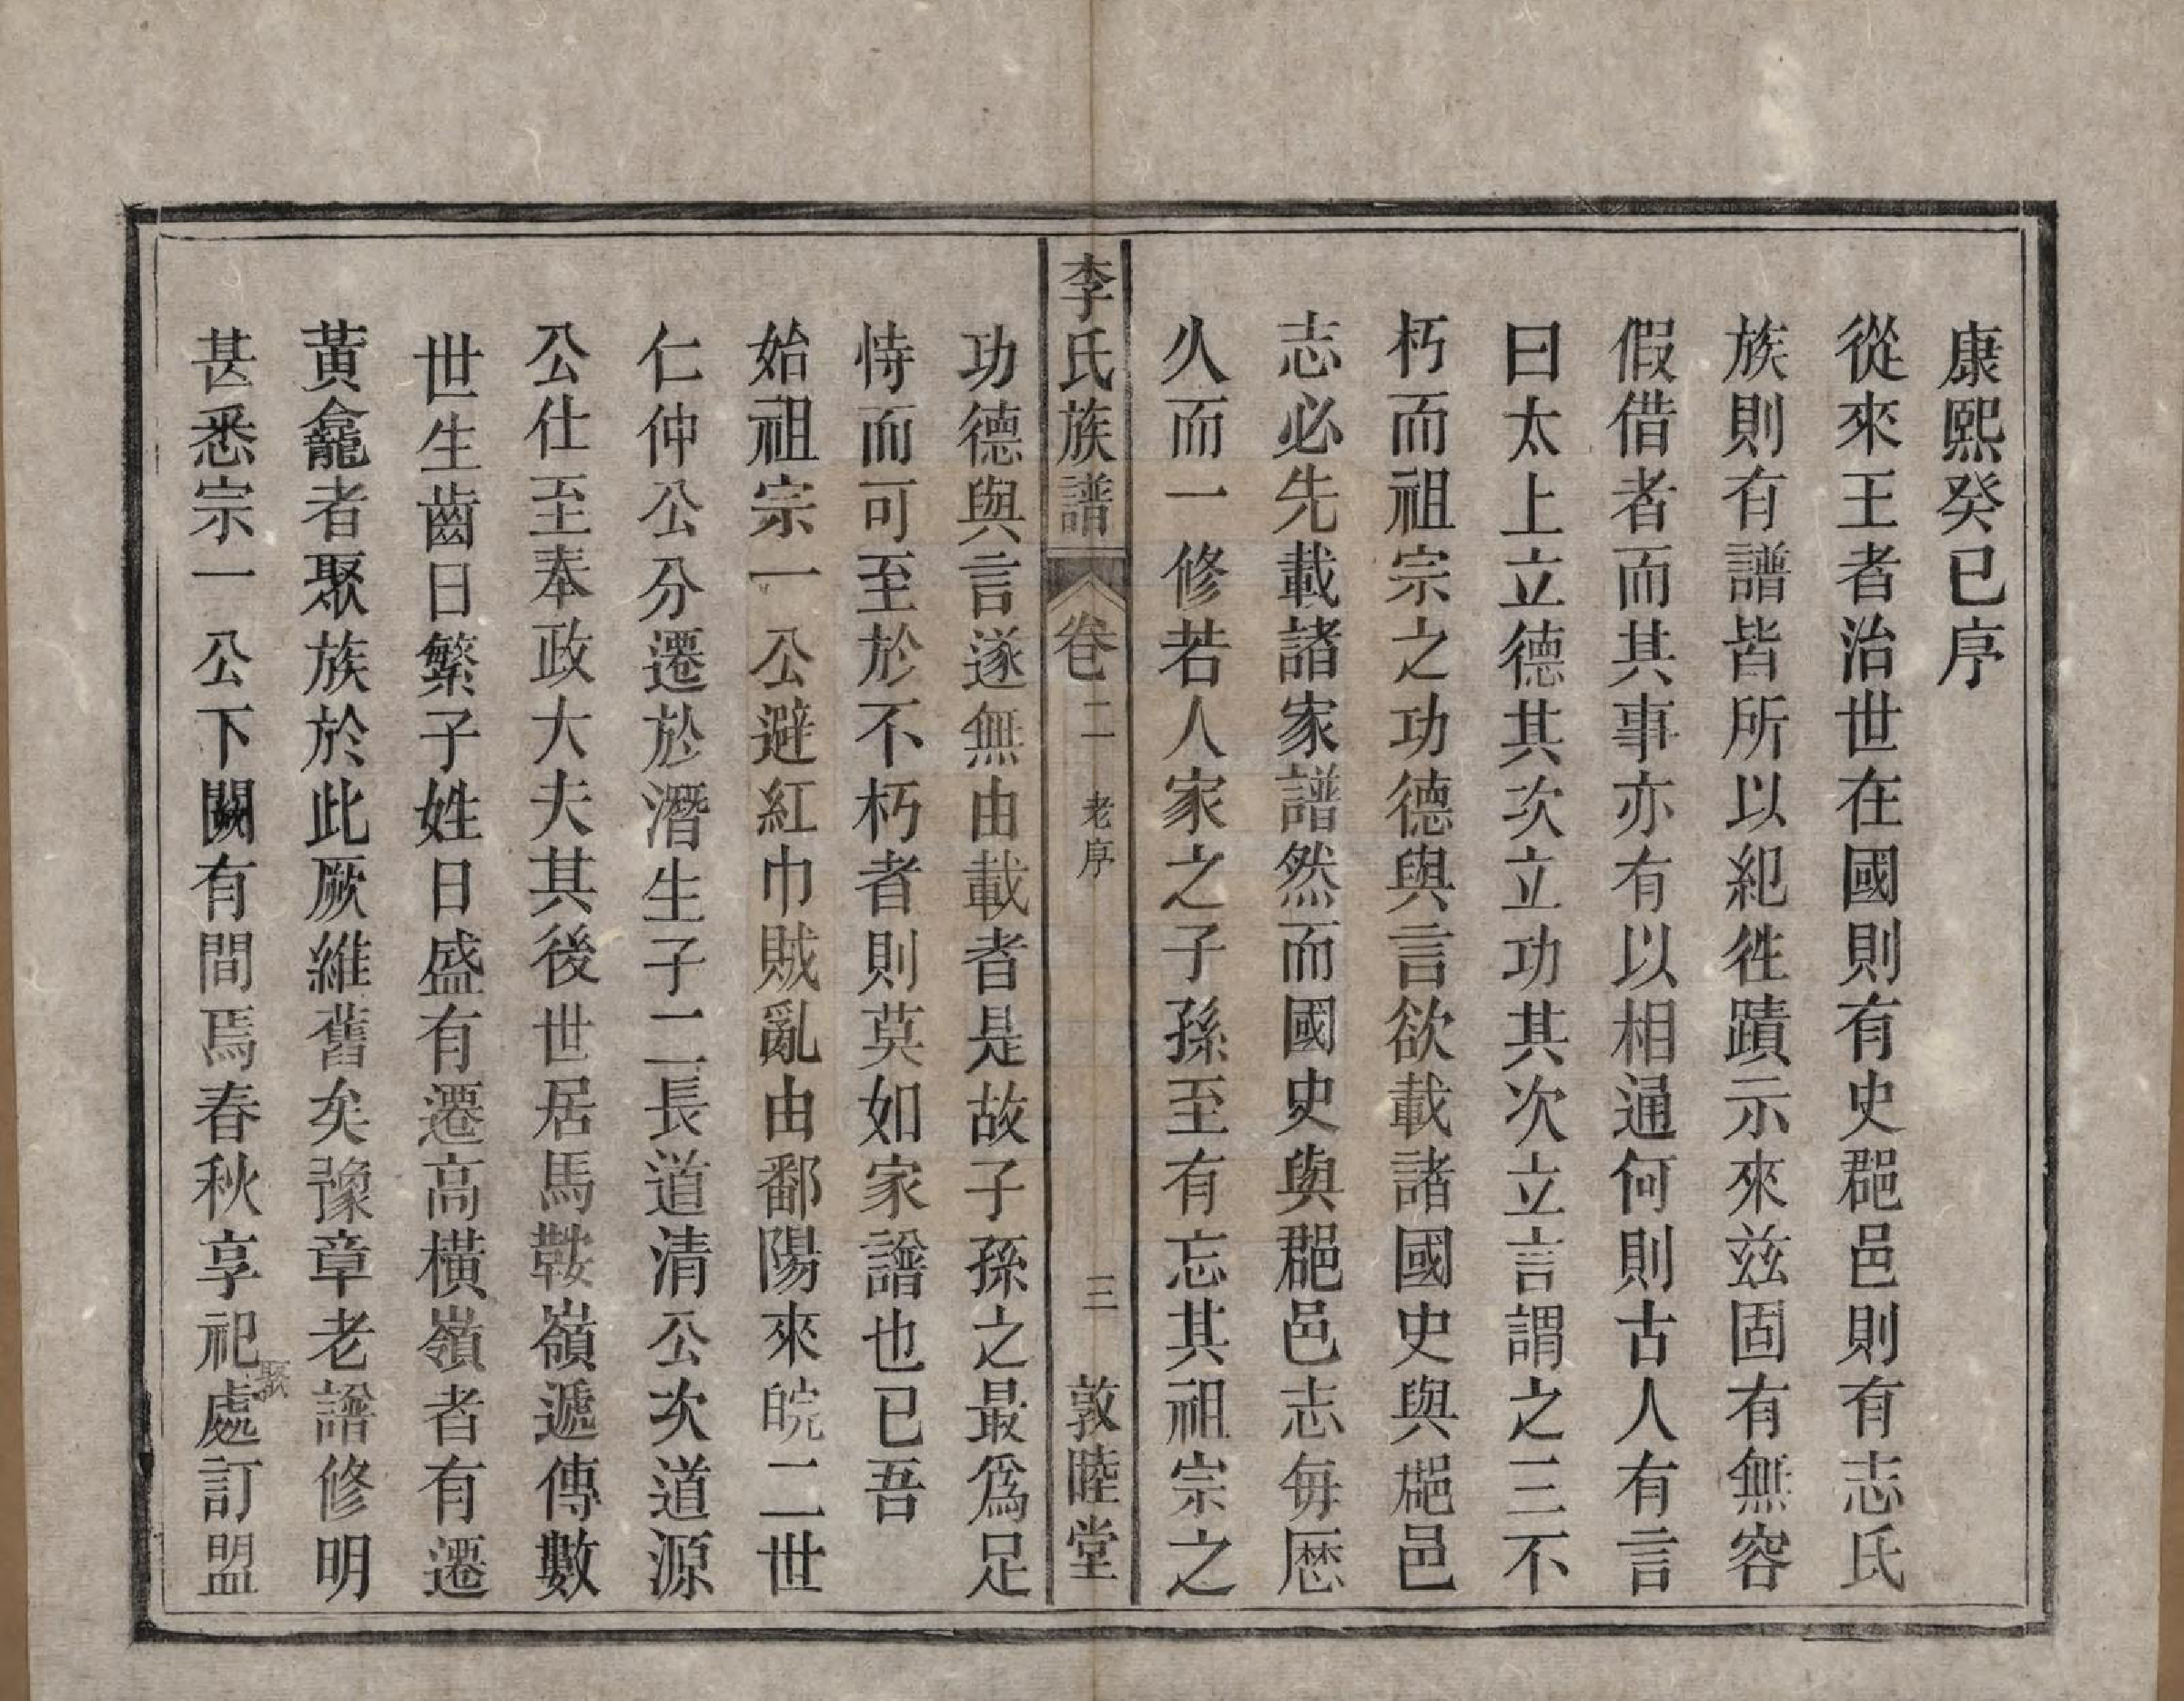 康熙癸巳序
從來王者治世在國則有史郡邑則有志氏
族則有譜皆所以紀徃蹟示來兹固有無容
假借者而其事亦有以相通何則古人有言
曰太上立德其次立功其次立言謂之三不
朽而祖宗之功德與言欲載諸國史與郡邑
志必先載諸家譜然而國史與郡邑志毎厯
久而一修若人家之子孫至有忘其祖宗之
李氏族譜 卷二 老序 三 敦睦堂
功德與言遂無由載者是故子孫之最爲足
恃而可至於不朽者則莫如家譜也已吾
始祖宗一公避紅巾賊亂由鄱陽來皖二世
仁仲公分遷於潛生子二長道清公次道源
公仕至奉政大夫其後世居馬鞍嶺遞傳數
世生齒日繁子姓日盛有遷高橫嶺者有遷
黃龕者聚族於此厥維舊矣豫章老譜修明
甚悉宗一公下闕有間焉春秋享祀處訂盟
聚